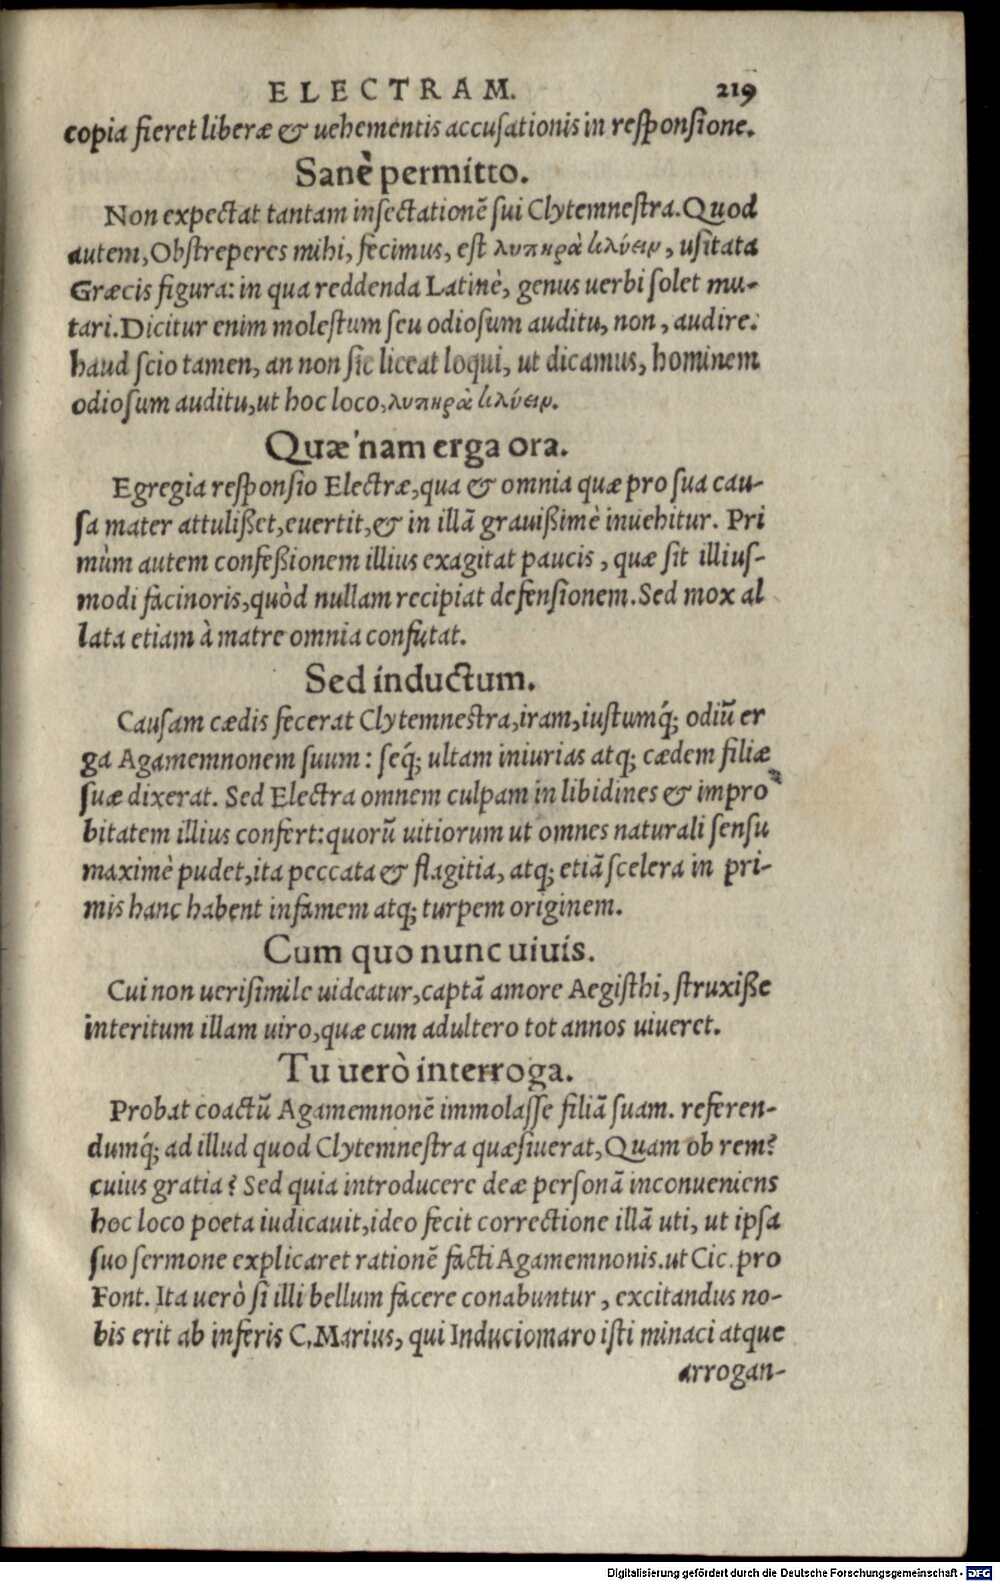 ELECTRAM. 219
copia fieret liberæ & uehementis accusationis in responsione.
Sanè permitto.
Non expectat tantam insectationẽ sui Clytemnestra. Quod
autem, Obstreperes mihi, fecimus, est λυπηρὰ κλύειν, usitata
Græcis figura: in qua reddenda Latinè, genus uerbi solet mu-
tari. Dicitur enim molestum seu odiosum auditu, non, audire:
haud scio tamen, an non sic liceat loqui, ut dicamus, hominem
odiosum auditu, ut hoc loco, λυπηρὰ κλύειν.
Quæ'nam erga ora.
Egregia responsio Electræ, qua & omnia quæ pro sua cau-
sa mater attulißet, euertit, & in illã grauißimè inuehitur. Pri
mùm autem confeßionem illius exagitat paucis, quæ sit illius-
modi facinoris, quòd nullam recipiat defensionem. Sed mox al
lata etiam à matre omnia confutat.
Sed inductum.
Causam cædis fecerat Clytemnestra, iram, iustumq́; odiũ er
ga Agamemnonem suum: seq́; ultam iniurias atq; cædem filiæ
suæ dixerat. Sed Electra omnem culpam in libidines & impro
bitatem illius confert: quorũ uitiorum ut omnes naturali sensu
maximè pudet, ita peccata & flagitia, atq; etiã scelera in pri-
mis hanc habent infamem atq; turpem originem.
Cum quo nunc uiuis.
Cui non uerisimile uideatur, captã amore Aegisthi, struxiße
interitum illam uiro, quæ cum adultero tot annos uiueret.
Tu uerò interroga.
Probat coactũ Agamemnonẽ immolasse filiã suam. referen-
dumq́; ad illud quod Clytemnestra quæsiuerat, Quam ob rem?
cuius gratia? Sed quia introducere deæ personã inconueniens
hoc loco poeta iudicauit, ideo fecit correctione illã uti, ut ipsa
suo sermone explicaret rationẽ facti Agamemnonis. ut Cic. pro
Font. Ita uerò si illi bellum facere conabuntur, excitandus no-
bis erit ab inferis C. Marius, qui Induciomaro isti minaci atque
arrogan-
Digitalisierung gefördert durch die Deutsche Forschungsgemeinschaft - DFG